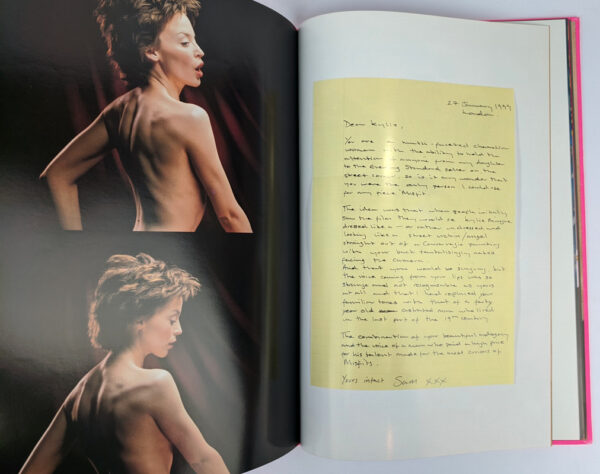 27 January 1999
London
Dear Kylie,
You are a multi-faceted chameleon
woman with the ability to hold the
attention of everyone from my daughter
to the Evening Standard seller on the
street corner so is it any wonder that
you were the only person I could use
for my piece Misfit
The idea was that when people initially
saw the film they would see Kylie Minogue
dressed like a - or rather undressed and
looking like a street urchin/angel
straight out of a Caravaggio painting
with your back tantalisingly naked
facing the camera.
And that you would be singing but
the voice coming from your lips was so
strange and not recognisable as yours
at all and that I had replaced your
familiar tones with that of a forty
year old castrated man who lived
in the last part of the 19th century
The combination of your beautiful
and the voice of a man who paid a high price
for his talent made for the most curious of
Misfits.
Yours intact Sam xxx